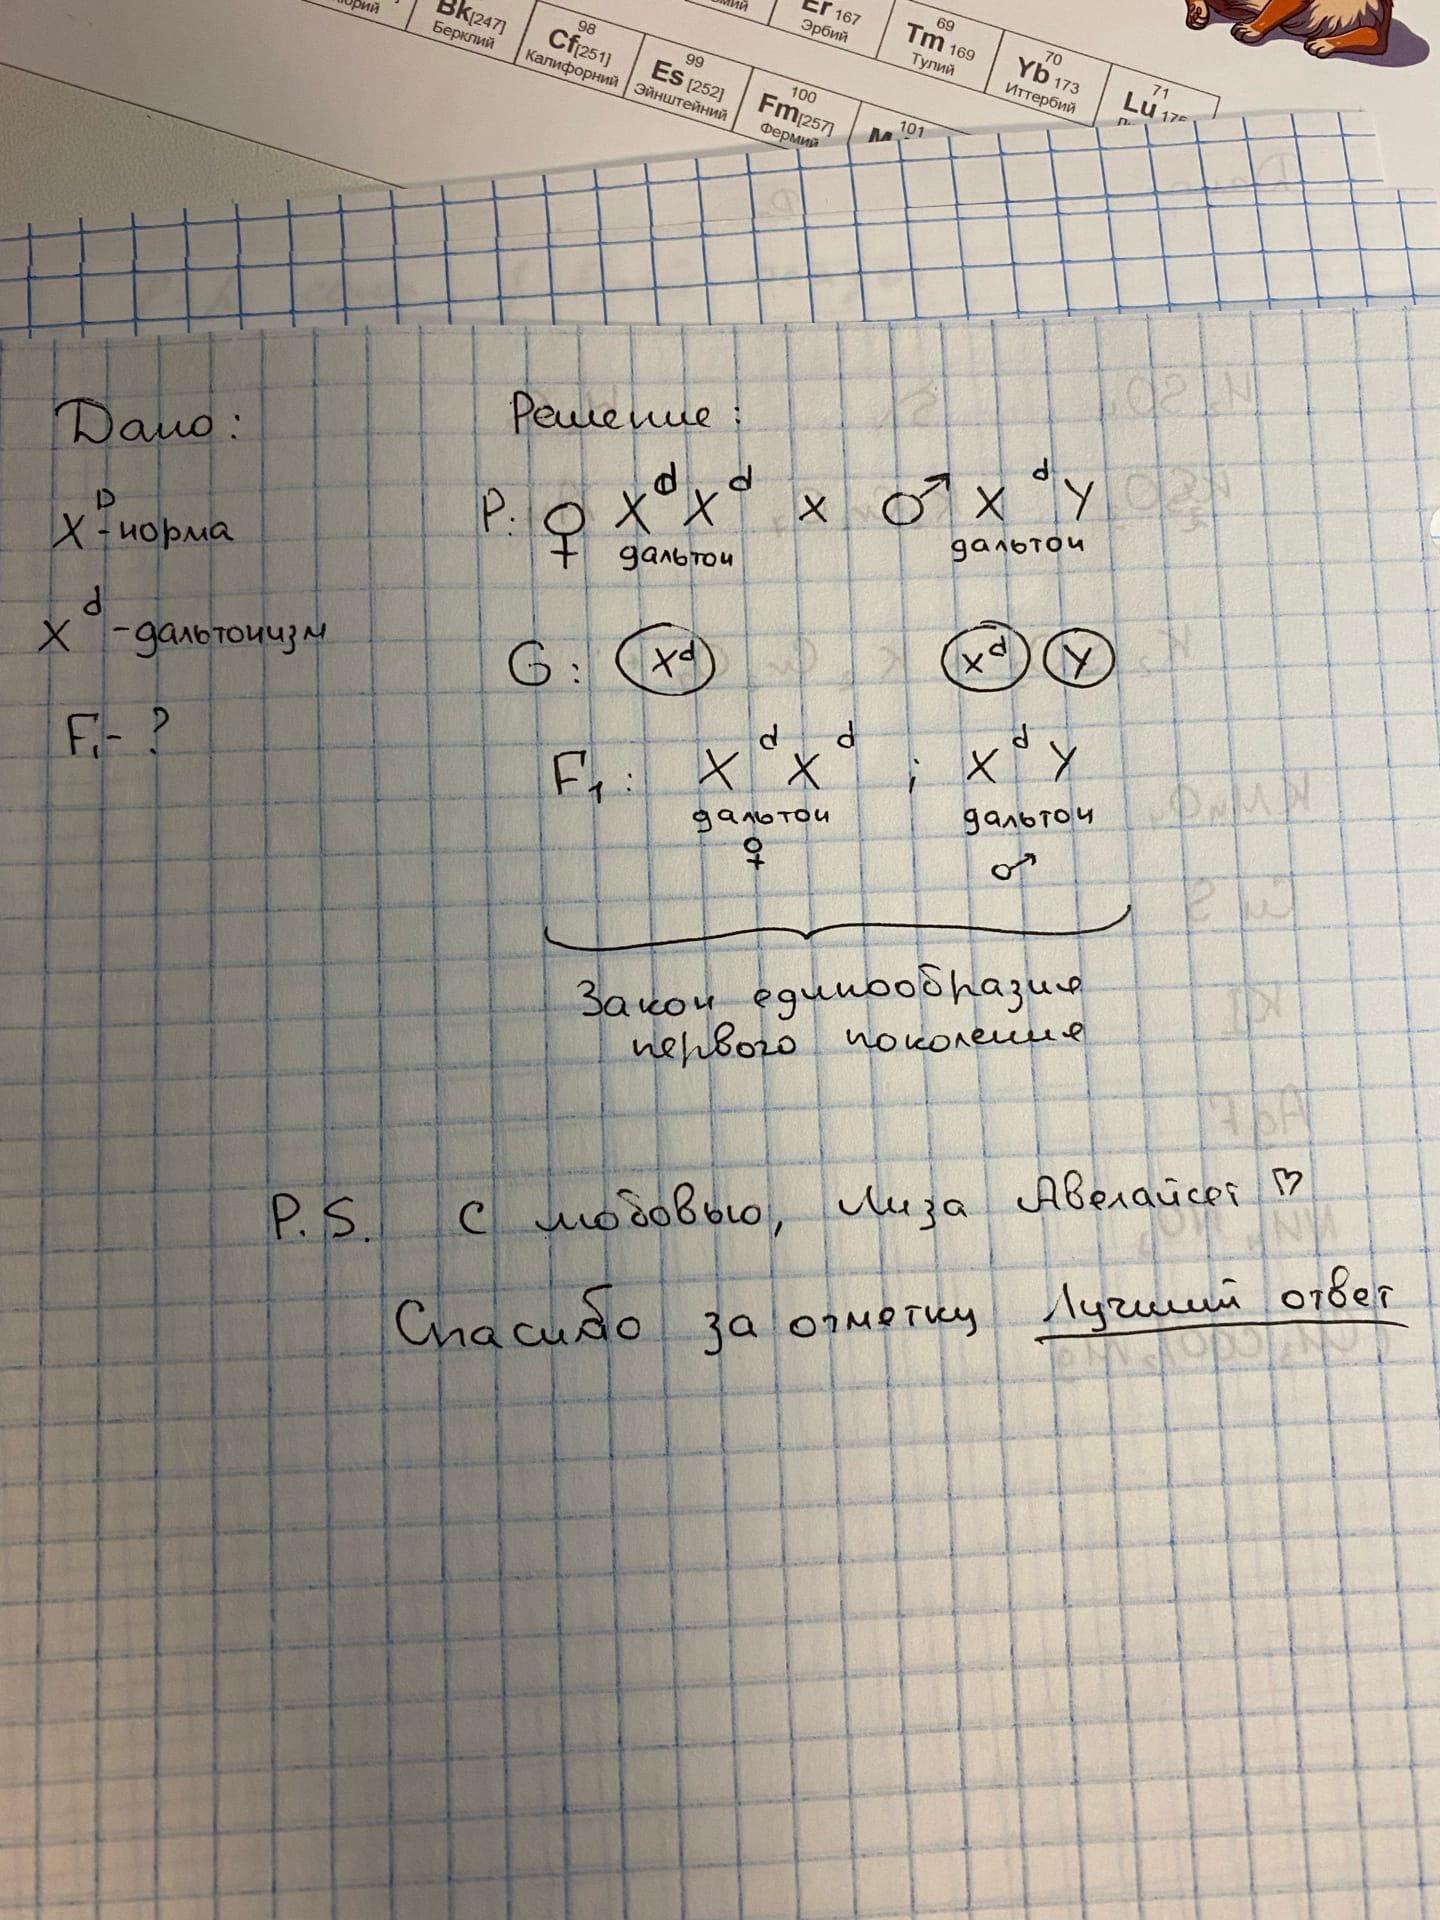 Bk[247]
Берклий
98
Cf[251]
Калифорний
99
Es [252]
Эйнштейний
100
Fm[257]
Фермий
101
Er 167
Эрбий
69
Tm 169
Тулий
70
Yb 173
Иттербий
71
Lu
Дано:
Решение:
X^D - норма
P: ♀ X^d X^d x ♂ X^d Y
дальтон дальтон
X^d - дальтонизм
G: X^d X^d Y
F₁ - ?
F₁: X^d X^d ; X^d Y
дальтон дальтон
♀ ♂
Закон единообразия
первого поколения
P.S. С любовью, Лиза Авелайсет ♡
Спасибо за отметку Лучший ответ